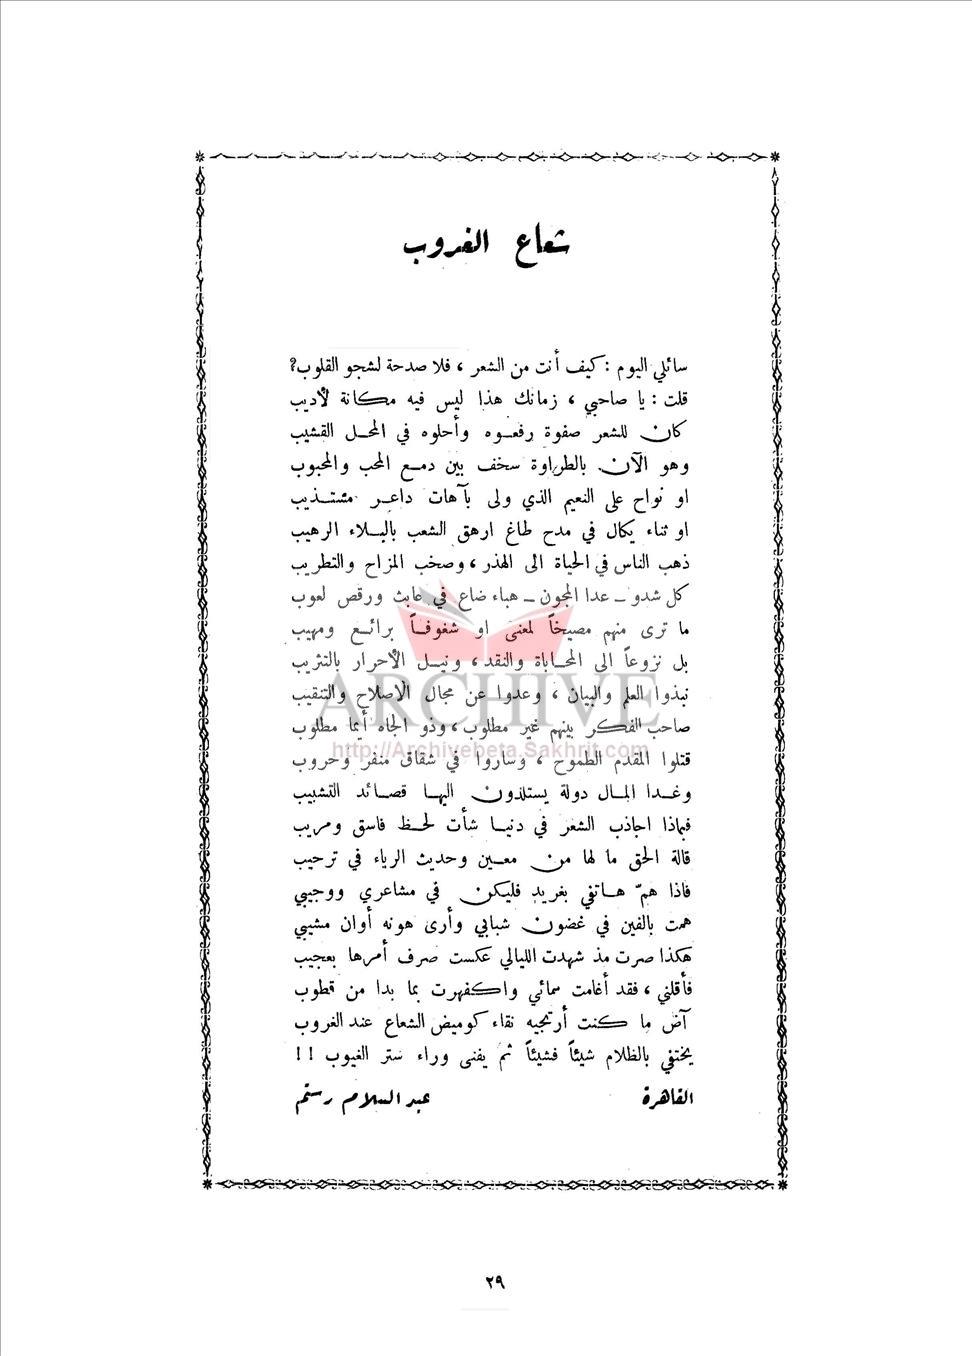 شعاع الغروب
سائلي اليوم : كيف أنت من الشعر ، فلا صدحة لشجو القلوب؟
قلت : يا صاحبي ، زمانك هذا ليس فيه مكانة لأديب
كان للشعر صفوة رفعوه وأحلوه في المحل القشيب
وهو الآن بالطراوة سخف بين دمع المحب والمحبوب
او نواح على النعيم الذي ولى بآهات داعر مستذيب
او ثناء يكال في مدح طاغ ارهق الشعب بالبلاء الرهيب
ذهب الناس في الحياة الى الهذر ، وصخب المزاح والتطريب
كل شدو ــ عدا المجون ــ هباء ضاع في عابث ورقص لعوب
ما ترى منهم مصيخاً لمعنى او شغوفاً برائع ومهيب
بل نزوعاً الى المحاباة والنقد ، ونيل الأحرار بالتثريب
نبذوا العلم والبيان ، وعدوا عن مجال الإصلاح والتنقيب
صاحب الفكر بينهم غير مطلوب ، وذو الجاه أيما مطلوب
قتلوا المقدم الطموح ، وساروا في شقاق منفر وحروب
وغدا المال دولة يستلذون اليها قصائد التشبيب
فبماذا اجاذب الشعر في دنيا شأت لحظ فاسق ومريب
قالة الحق ما لها من معين وحديث الرياء في ترحيب
فاذا همّ هاتفي بغريد فليكن في مشاعري ووجيبي
همت بالفن في غضون شبابي وأرى هونه أوان مشيبي
هكذا صرت مذ شهدت الليالي عكست صرف أمرها بعجيب
فأقلني ، فقد أغامت سمائي واكفهرت بما بدا من قطوب
آض ما كنت أرتجيه نقاء كوميض الشعاع عند الغروب
يختفي بالظلام شيئاً فشيئاً ثم يفنى وراء ستر الغيوب !!
القاهرة عبد السلام رستم
ARCHIVE
http://Archivebeta.Sakhrit.com
٢٩